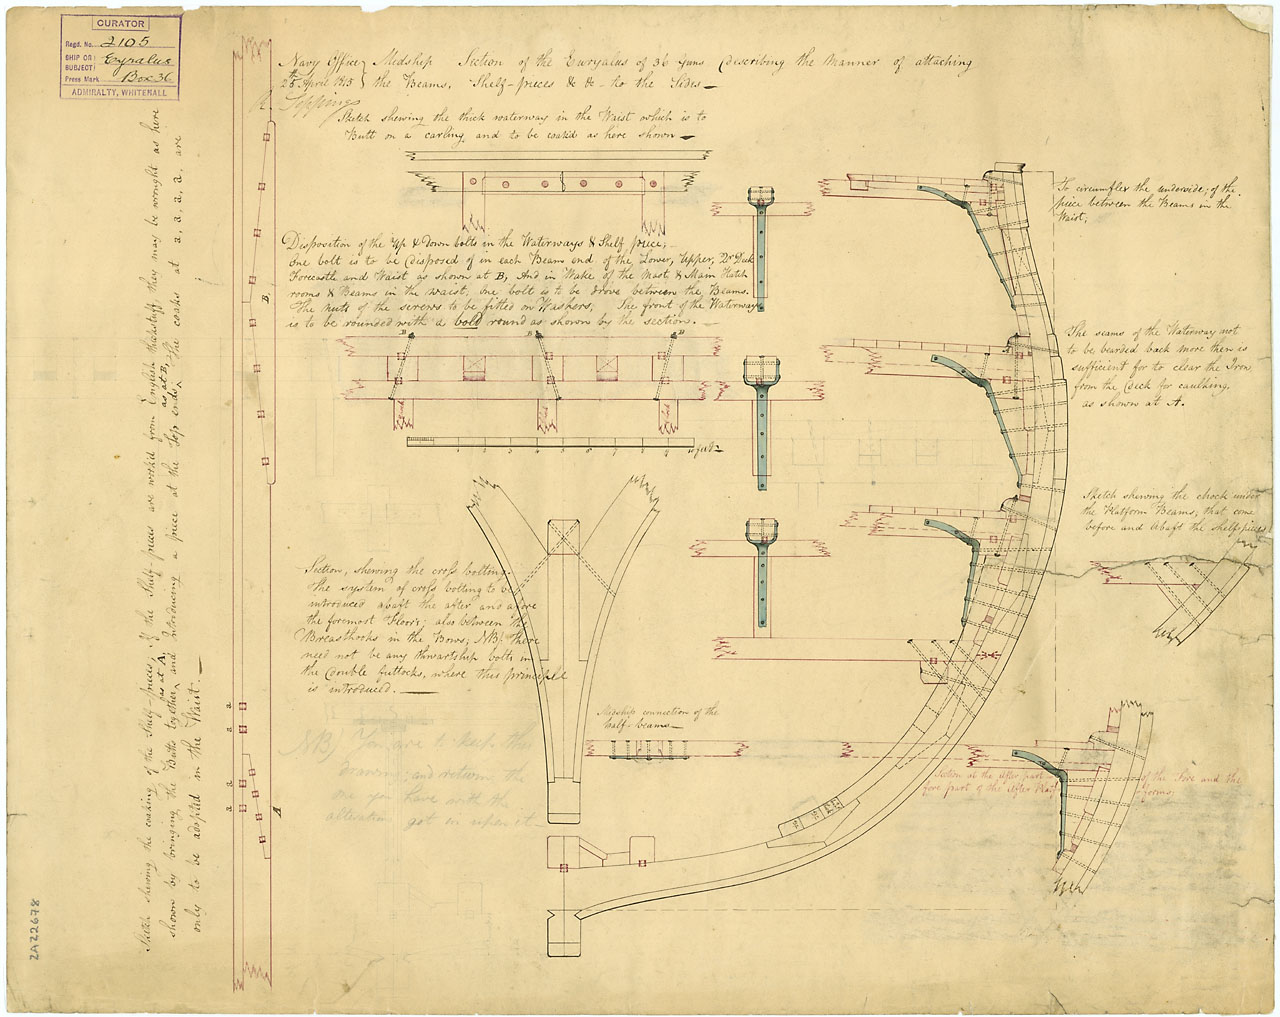 CURATOR
Regd. No. 2105
SHIP OR
SUBJECT Euryalus
Press Mark Box 36
ADMIRALTY, WHITEHALL
Navy Office
25th April 1815
Midship Section of the Euryalus of 36 Guns describing the Manner of attaching
the Beams, Shelf-pieces &c &c to the Sides
R. Seppings
Sketch shewing the thick waterway in the Waist which is to
Butt on a carling, and to be coak'd as here shown
Disposition of the Up & Down bolts in the Waterways & Shelf piece;
One bolt is to be disposed of in each Beam end of the Lower, Upper, Qr Deck
Forecastle and Waist as shown at B, And in Wake of the Mast & Main Hatch
rooms & Beams in the waist, one bolt is to be drove between the Beams.
The nuts of the screws to be fitted on Washers, The front of the Waterways
is to be rounded with a bold round as shown by the section.
B
B
B
1 2 3 4 5 6 7 8 9 10 feet
To circumflex the underside; of the
piece between the Beams in the
Waist;
The seams of the Waterway not
to be bearded back more then is
sufficient for to clear the Iron
from the Deck for caulking,
as shown at A.
A
Sketch shewing the chock under
the Platform Beams, that come
before and abaft the shelf pieces
Section, shewing the cross bolting.
The system of cross bolting to be
introduced abaft the after and afore
the foremost Floors; also between the
Breasthooks in the Bows; NB/. there
need not be any thwartship bolts in
the double futtocks, where this principle
is introduced.
Midship connection of the
half-beams
Section at the After part of the Fore and the
fore part of the After Platforms;
NB/ You are to keep this
drawing; and return the
one you have with the
alteration got in upon it
Sketch shewing the coaking of the Shelf-pieces; If the Shelf pieces are work'd from English thickstuff they may be wrought as here
shown by bringing the Butts together as at A, and Introducing a piece at the Top ends as at B, The coaks at a, a, a, a, are
only to be adopted in the Waist.
B
A
a
a
a
a
ZAZ2678